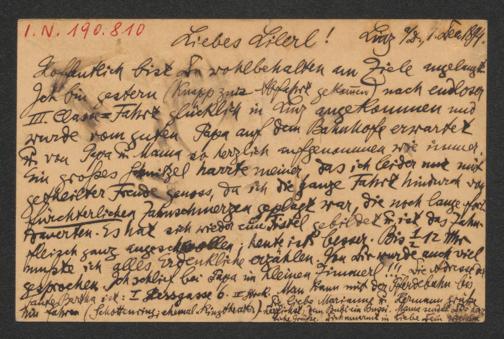 I.N. 190.810
Liebes Lilerl! Linz a/D., 1. Dez. 1894
Hoffentlich bist Du wohlbehalten am Ziele angelangt.
Ich bin gestern (knapp zur Abfahrt gekommen) nach endloser
III. Classe = Fahrt glücklich in Linz angekommen und
wurde vom guten Papa auf dem Bahnhofe erwartet
u. von Papa u. Mama so herzlich aufgenommen wie immer.
Ein großes Schnitzel harrte meiner, das ich leider nur mit
getheilter Freude genoss, da ich die ganze Fahrt hindurch von
fürchterlichen Zahnschmerzen geplagt war, die noch lange fort
dauerten. Es hat sich wieder eine Fistel gebildet u. ist das Zahn-
fleisch ganz angeschwollen; heute ist besser. Bis 1/2 12 Uhr
musste ich alles Erdenkliche erzählen. Von Dir wurde auch viel
gesprochen. Ich schlief bei Papa im kleinen Zimmerl!!! Die Adresse der
Tante Bertha ist: I Hessgasse 6. II. Stock. Man kann mit der Pferdebahn bis
hin fahren (Schottenring, ehemal. Ringtheater)